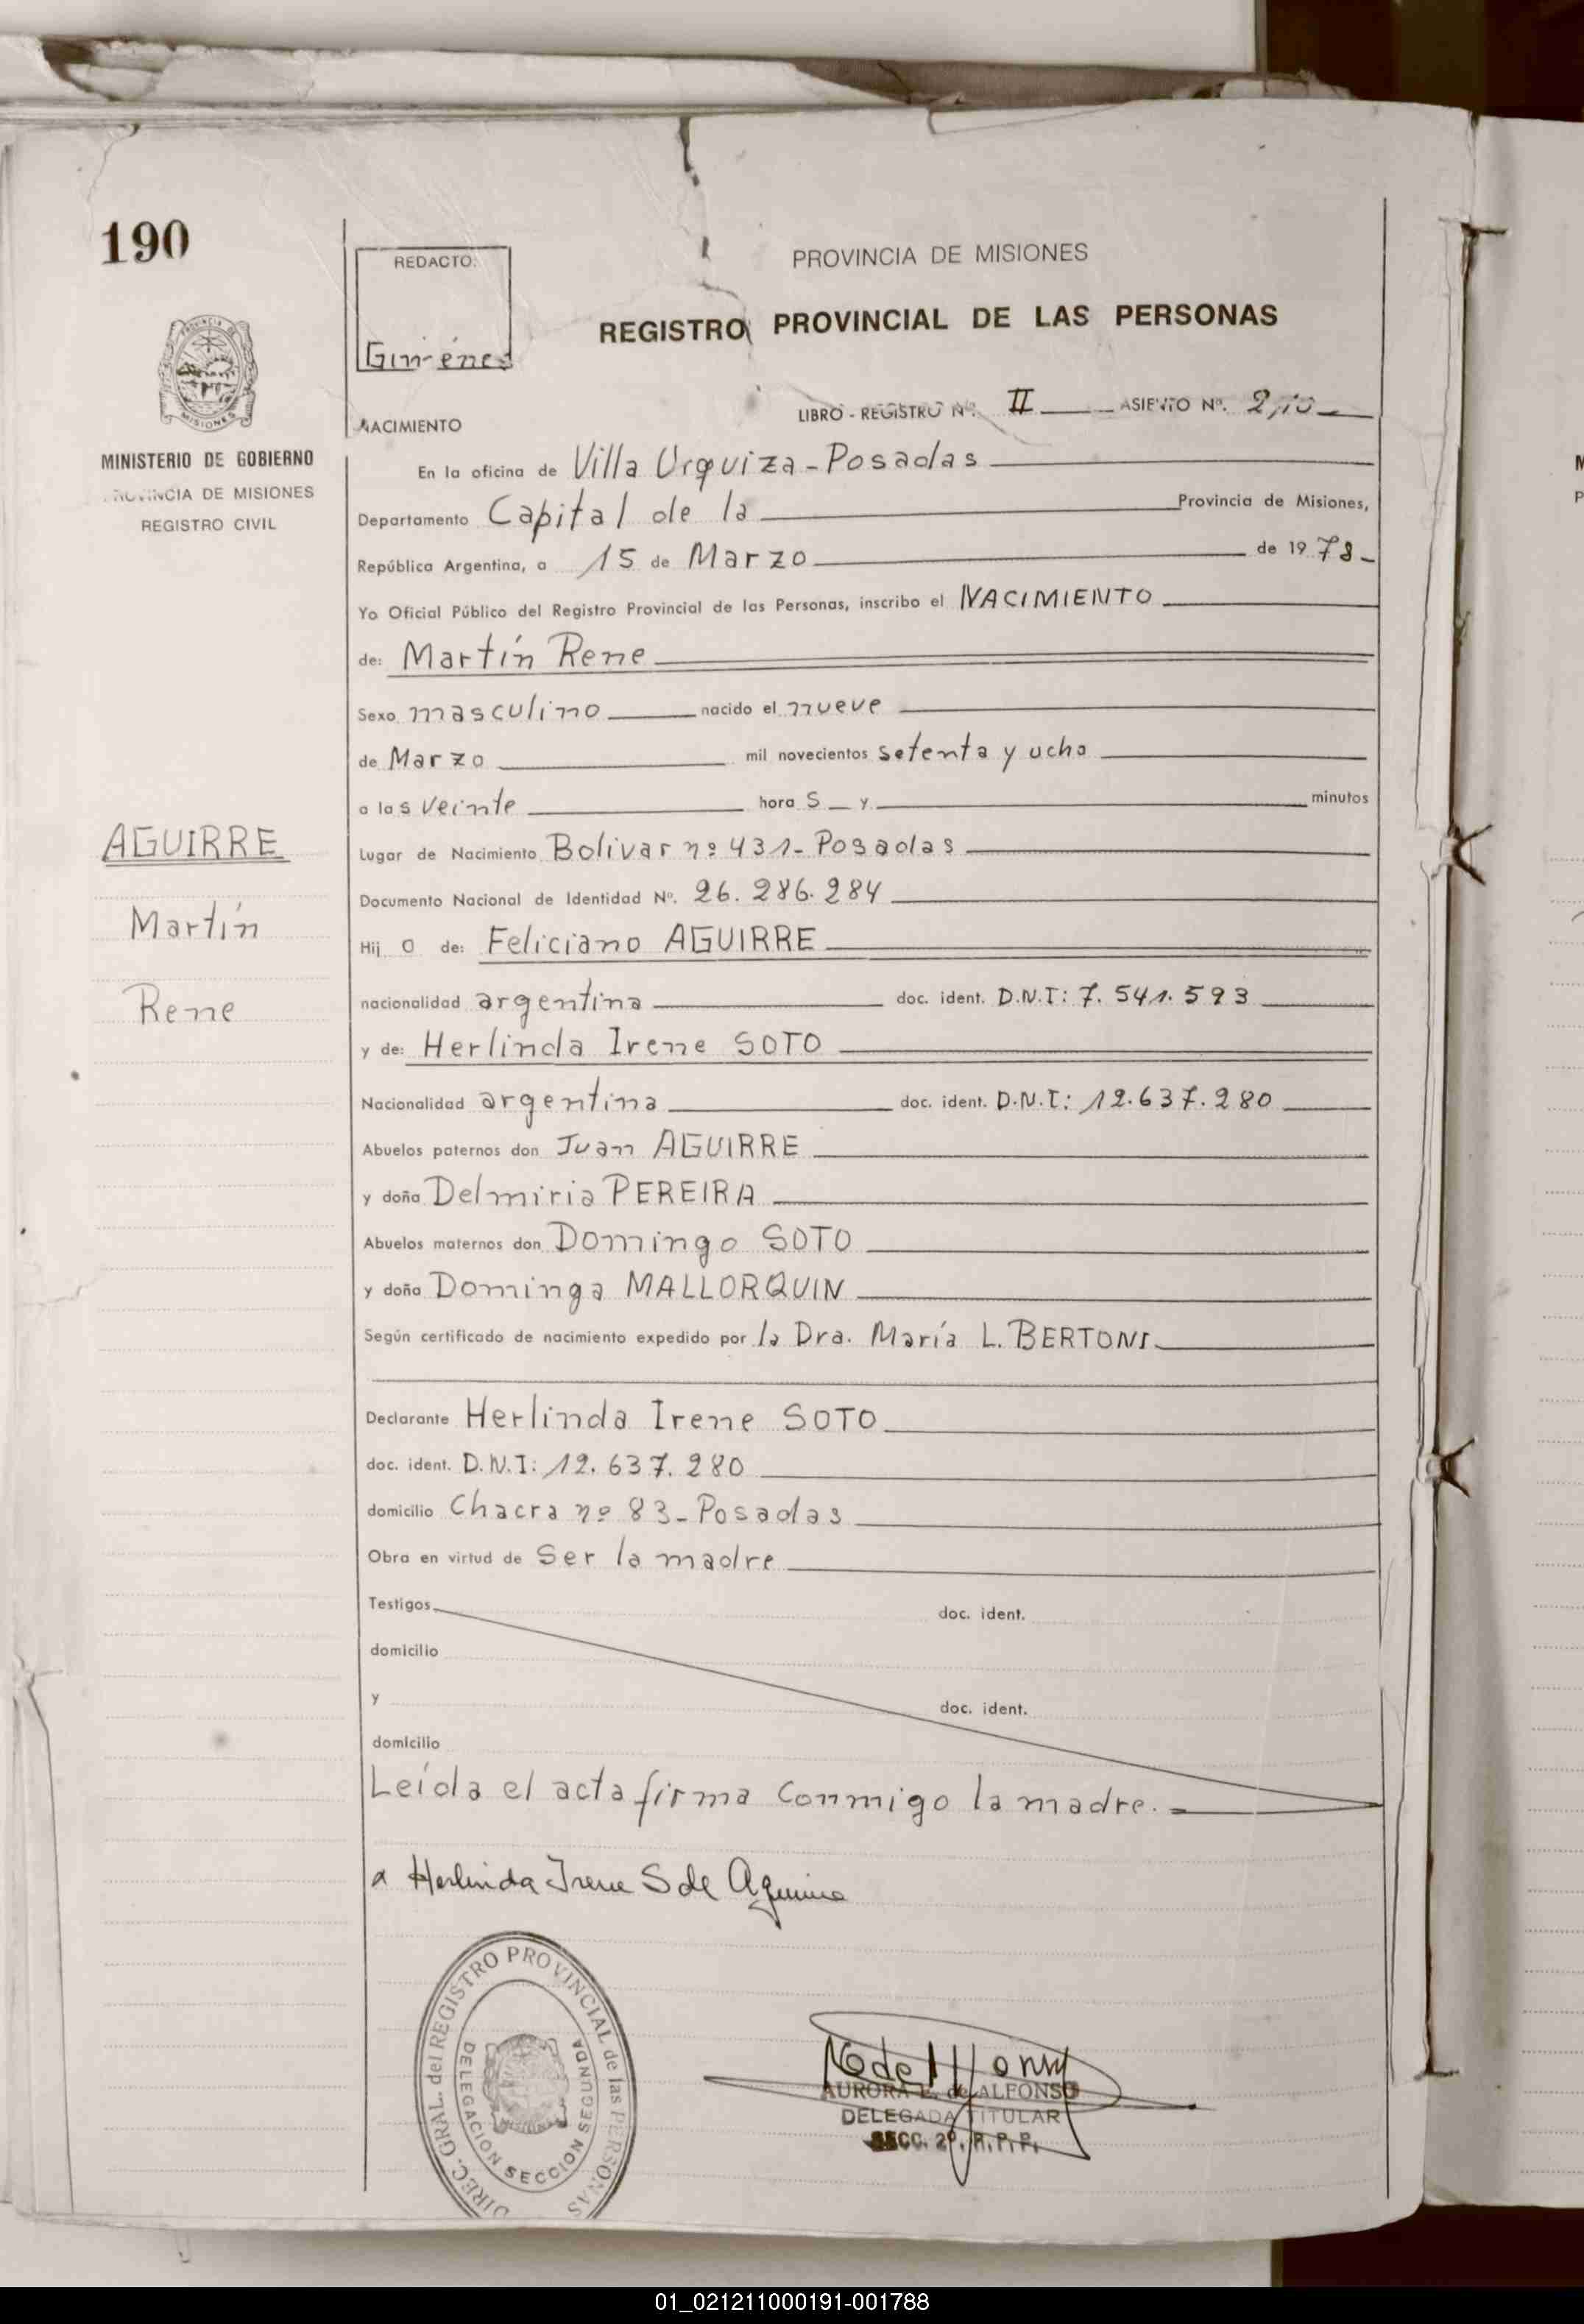 190
REDACTO:
Giménez
PROVINCIA DE MISIONES
REGISTRO PROVINCIAL DE LAS PERSONAS
PROVINCIA DE
MISIONES
MINISTERIO DE GOBIERNO
PROVINCIA DE MISIONES
REGISTRO CIVIL
LIBRO - REGISTRO Nº. II ASIENTO Nº.
NACIMIENTO
En la oficina de Villa Urquiza - Posadas
Departamento Capital de la Provincia de Misiones,
República Argentina, a 15 de Marzo de 1978
Yo Oficial Público del Registro Provincial de las Personas, inscribo el NACIMIENTO
de: Martín Rene
Sexo masculino nacido el nueve
de Marzo mil novecientos setenta y ocho
a las veinte hora s y minutos
Lugar de Nacimiento Bolivar nº 431- Posadas
Documento Nacional de Identidad Nº. 26.286.284
Hij o de: Feliciano AGUIRRE
nacionalidad argentina doc. ident. D.N.I: 7.541.593
y de: Herlinda Irene SOTO
Nacionalidad argentina doc. ident. D.N.I: 12.637.280
Abuelos paternos don Juan AGUIRRE
y doña Delmiria PEREIRA
Abuelos maternos don Domingo SOTO
y doña Dominga MALLORQUIN
Según certificado de nacimiento expedido por la Dra. María L. BERTONI
Declarante Herlinda Irene SOTO
doc. ident. D.N.I: 12.637.280
domicilio Chacra nº 83 - Posadas
Obra en virtud de ser la madre
Testigos doc. ident.
domicilio
y doc. ident.
domicilio
Leída el acta firma conmigo la madre.
Herlinda Irene S de Aguirre
AGUIRRE
Martín
Rene
DIREC. GRAL. del REGISTRO PROVINCIAL de las PERSONAS
DELEGACION SECCION SEGUNDA
AURORA de ALFONSO
DELEGADA TITULAR
SECC. 2º. R.P.P.
01_021211000191-001788